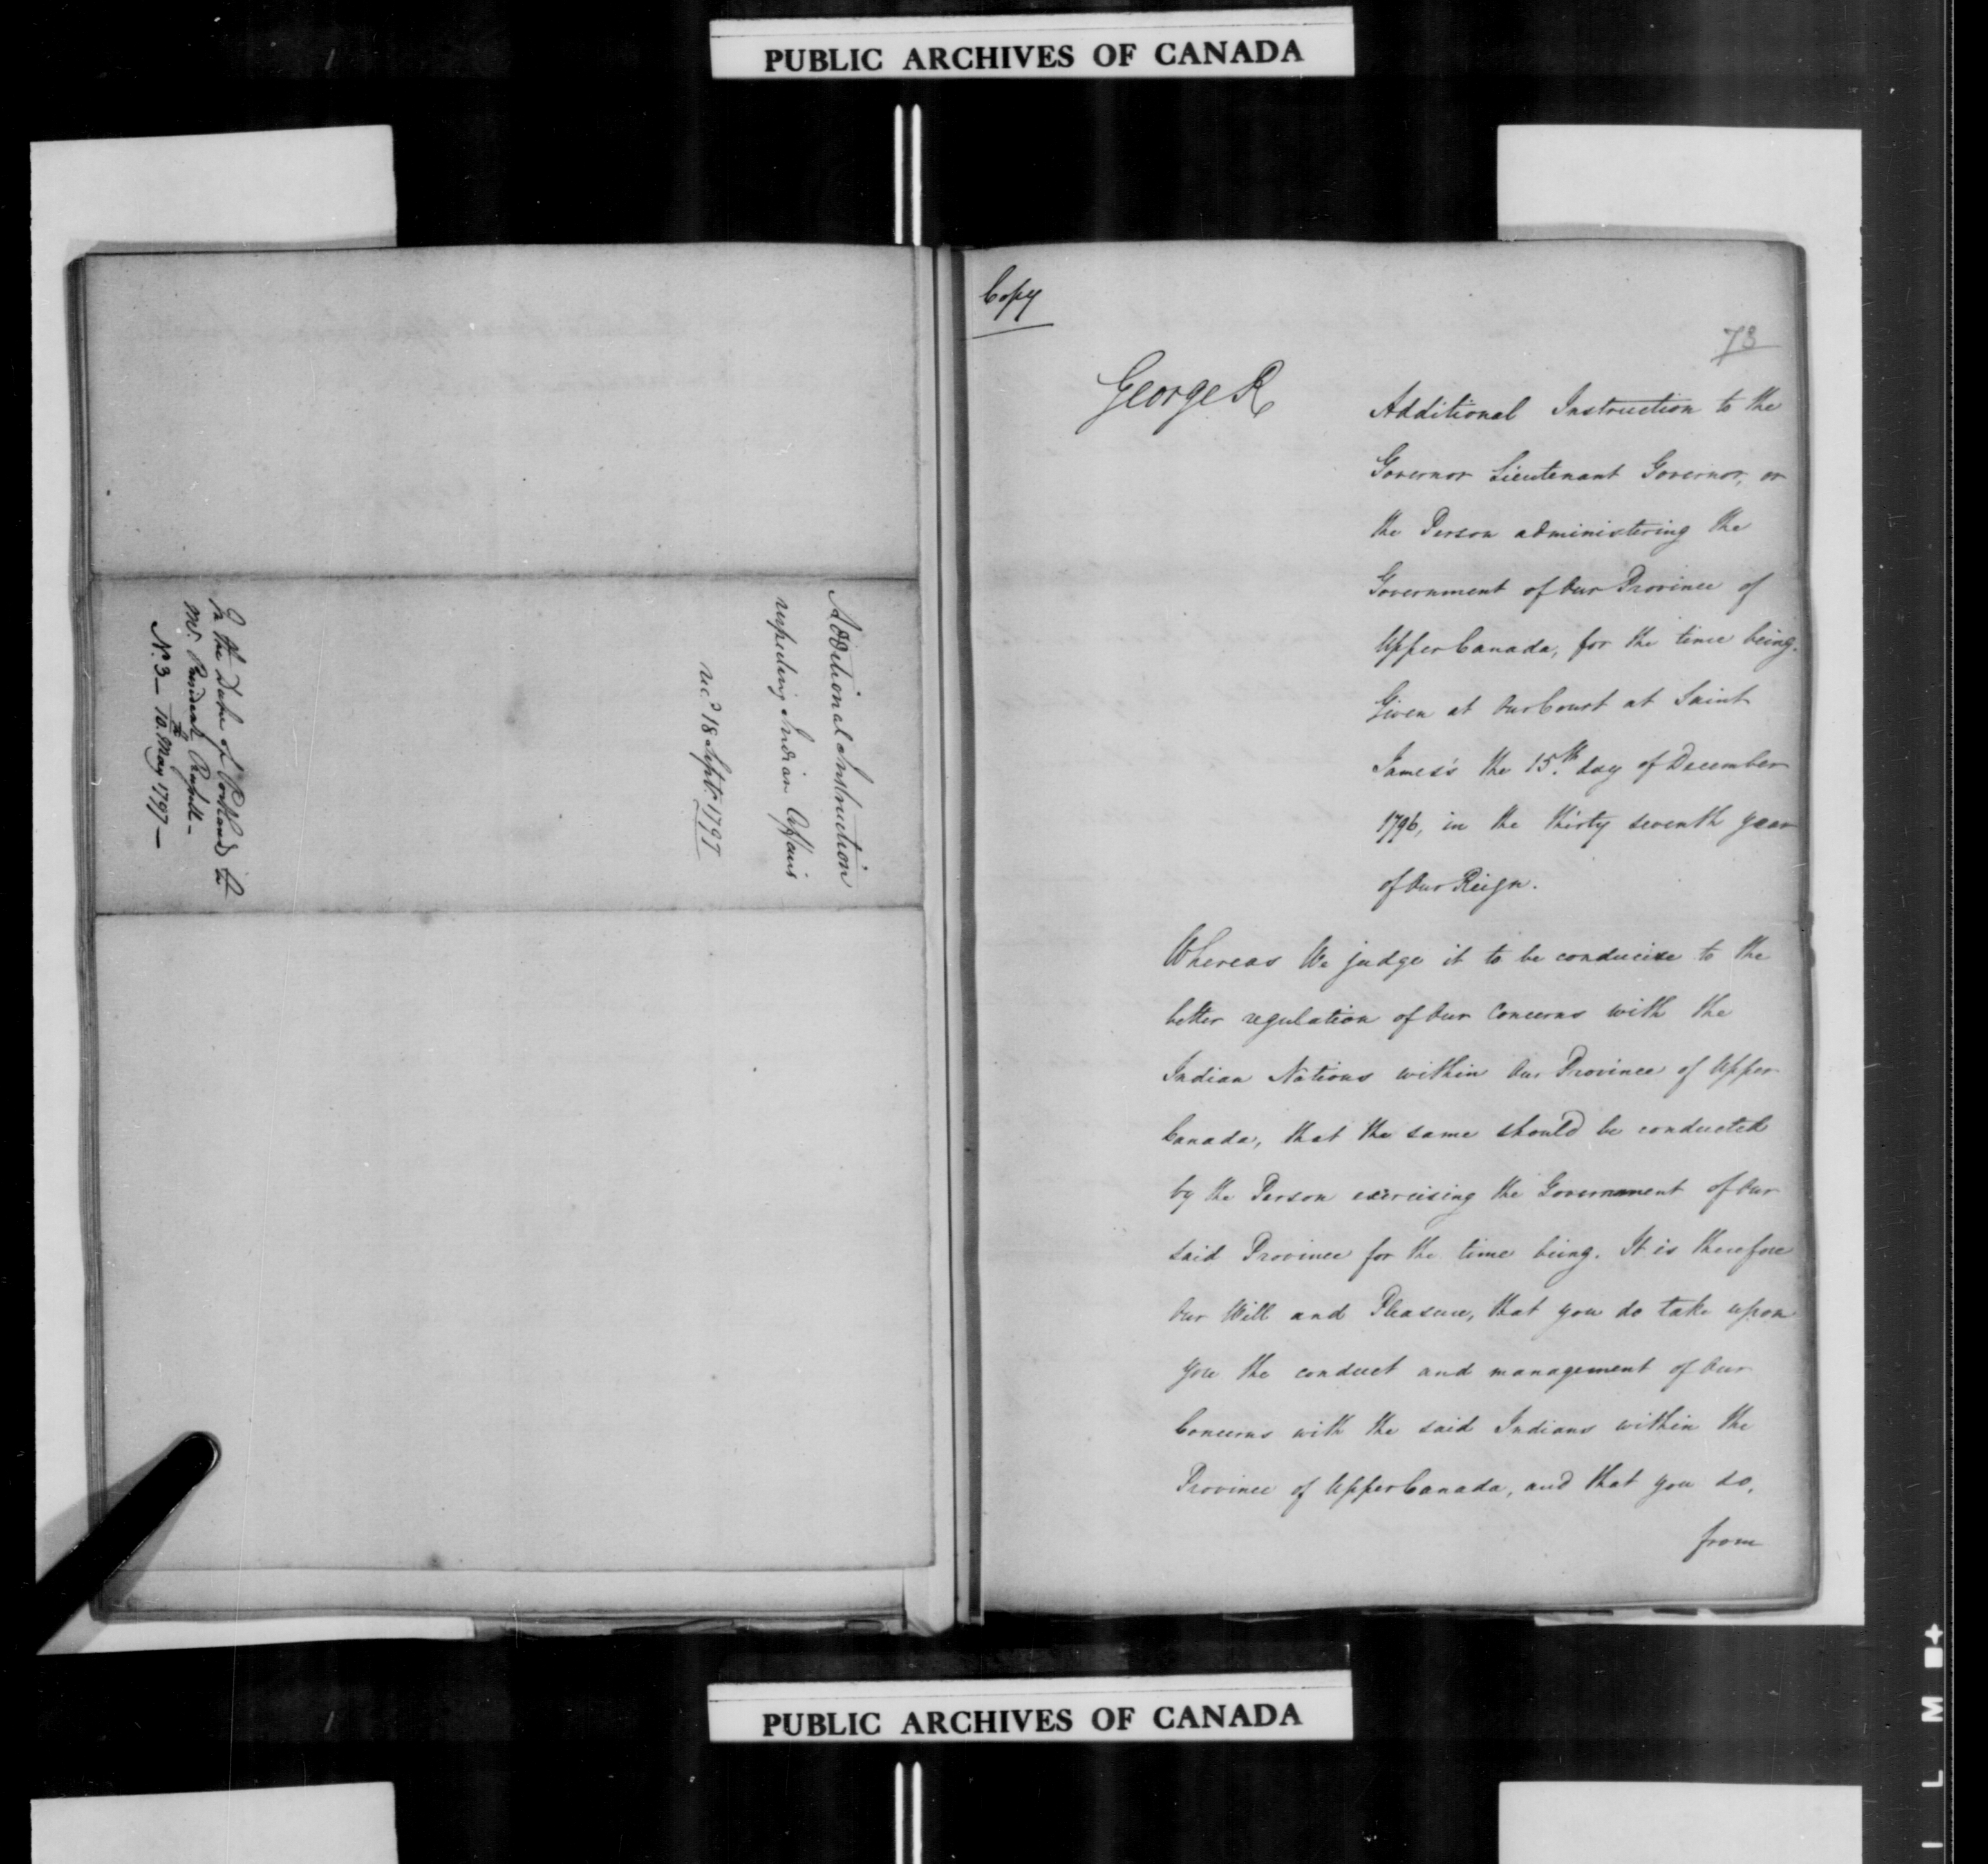 PUBLIC ARCHIVES OF CANADA
Additional Instruction
respecting Indian Affairs
rec.d 18 Sept.r 1797
In the Duke of Portland's to
Mr. President Russell -
N.o 3 - 10.th May 1797 -
Copy
73
George R
Additional Instruction to the
Governor Lieutenant Governor, or
the Person administering the
Government of Our Province of
Upper Canada, for the time being.
Given at Our Court at Saint
James's the 15.th day of December
1796, in the thirty seventh year
of Our Reign.
Whereas We judge it to be conducive to the
better regulation of Our Concerns with the
Indian Nations within Our Province of Upper
Canada, that the same should be conducted
by the Person exercising the Government of Our
said Province for the time being. It is therefore
Our Will and Pleasure, that you do take upon
you the conduct and management of Our
Concerns with the said Indians within the
Province of Upper Canada, and that you do,
from
PUBLIC ARCHIVES OF CANADA
I L M